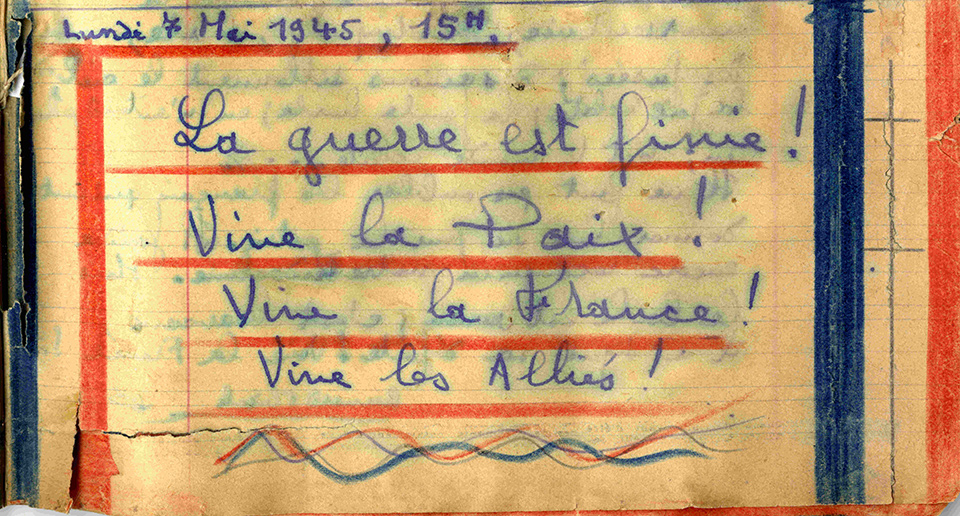 Lundi 7 Mai 1945, 15H.
La guerre est finie !
Vive la Paix !
Vive la France !
Vive les Alliés !